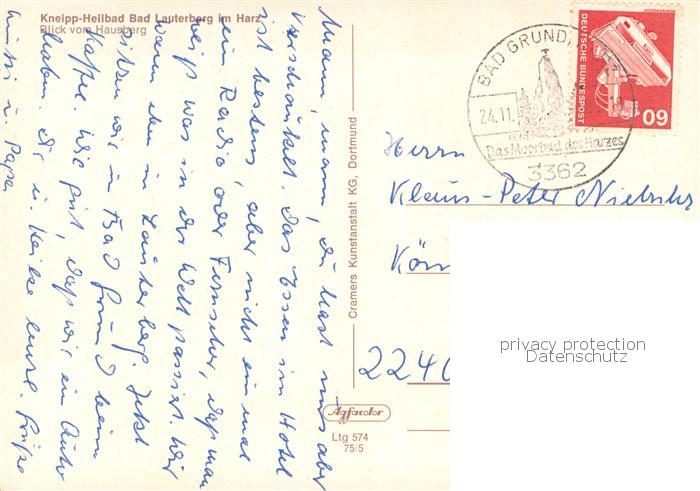 Kneipp-Heilbad Bad Lauterberg im Harz
Blick vom Hausberg
Mann, mann, du hast uns aber
verschaukelt. Das Essen im Hotel
ist bestens, aber nicht einmal
ein Radio oder Fernseher, daß man
weiß was in der Welt passiert. Wir
waren eben in Lauterberg. Jetzt
sitzen wir in Bad Grund beim
Kaffee. Wie gut, daß wir ein Auto
haben. Dir u. Heike herzl. Grüße
u. Papa
Cramers Kunstanstalt KG, Dortmund
Agfacolor
Ltg 574
75/5
BAD GRUND
24.11.
Das Moorbad des Harzes
3362
DEUTSCHE BUNDESPOST
60
Herrn
Klaus-Peter
2240
privacy protection
Datenschutz